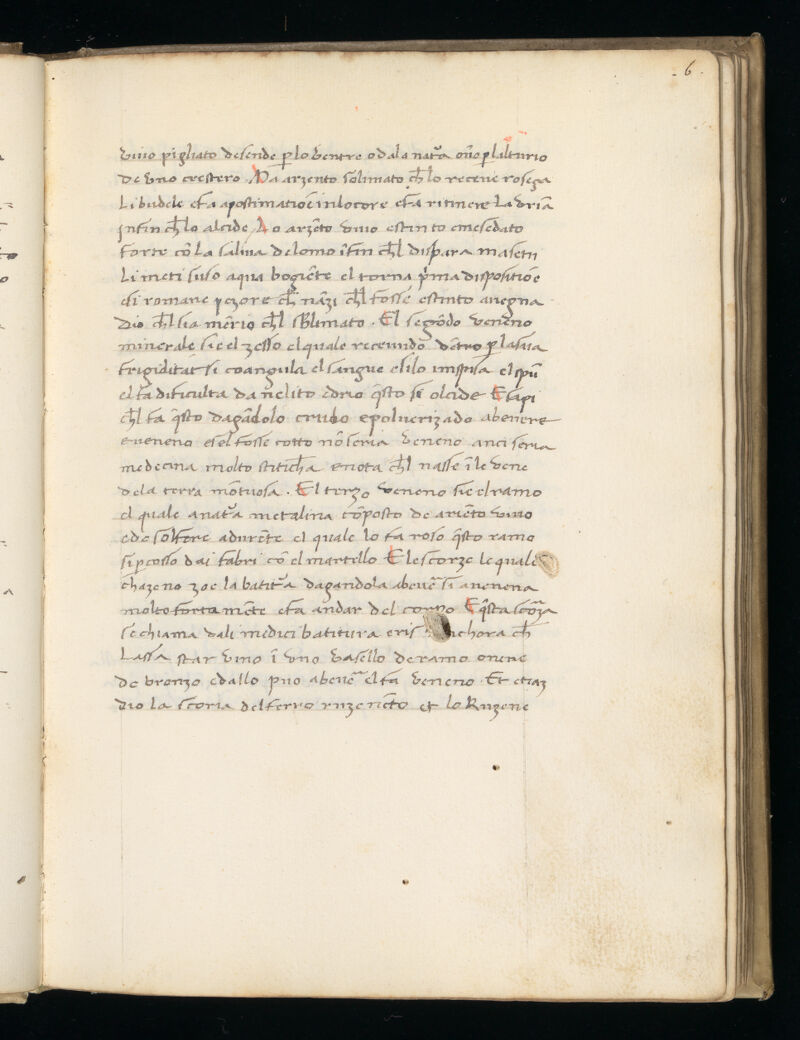 6
vivo pigliato desende ꝑ lo ventre o da la nat᷈a
de uno crestero Ma arzento solimato ch̅ lo receve rosega
li budele e fa apostimatiōe in locore e fa ritinere la vria
infin ch̅ lo alcide Lo arzēto vivo estinto e mesedato
forte cō la saliva de lomo īfin ch̅l dispara ma setu
li meti suso aqua bogiēte el torna ṗma dispositiōe
e si romane pezore ch̅ nāzi ch̅l fosse estinto avegna
dio ch̅l sia mē rio ch̅l sublimato . El segōdo veneno
minerale sie el zesso el quale recevudo dētro ꝑ la sua
frigiditat si coangula el sangue e silo inspisa el spū
el fa dificulta da nelito e drio q̄sto si olcide E sapi
ch̅l fa q̄sto dagādolo crudo e polverizado a bevere
e veneno e sel fosse cotto nō seria veneno anci seria
medecina molto stiticha e nota ch̅l nasse ī le vene
dela terra mōtuosa . El terzo veneno sie el ramo
el quale a nat᷈a metalina cōposto de ariēto vivo
e de solfere adurēte el quale lo fa roso q̄sto ramo
si ꝑcosso dai fabri cō el martello E le scorze le quale
chazeno zoe la batit᷈a dagandola a bevē si avenena
molto forta mēte e fa andar del corpo E q̄sta scorza
se chiama dali medici batitura eris chora ch̅
lassa star vino ī uno vasello de ramo overe
de bronzo e dallo puo a bevē el fa veneno . Et
dio la scoria del ferro ruzenēto et lo Ruzene